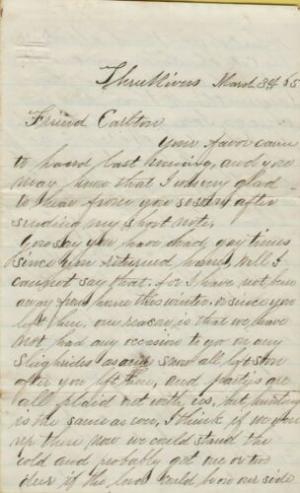 Three Rivers March 3d 65
Friend Carlton
Your favor came
to hand last evening, and you
may know that I was very glad
to hear from you so soon after
sending my short note.
You say you have had gay times
since you returned home, well I
cannot say that. for I have not been
away from home this winter. since you
left here, one reason is that we have
not had any occasion to go on any
sleighrides as our snow all left soon
after you left here, and partys are
all plaid out with us, but hunting
is the same as ever, I think if we were
up there now we could stand the
cold and probably get one or two
deer if the luck would on our side